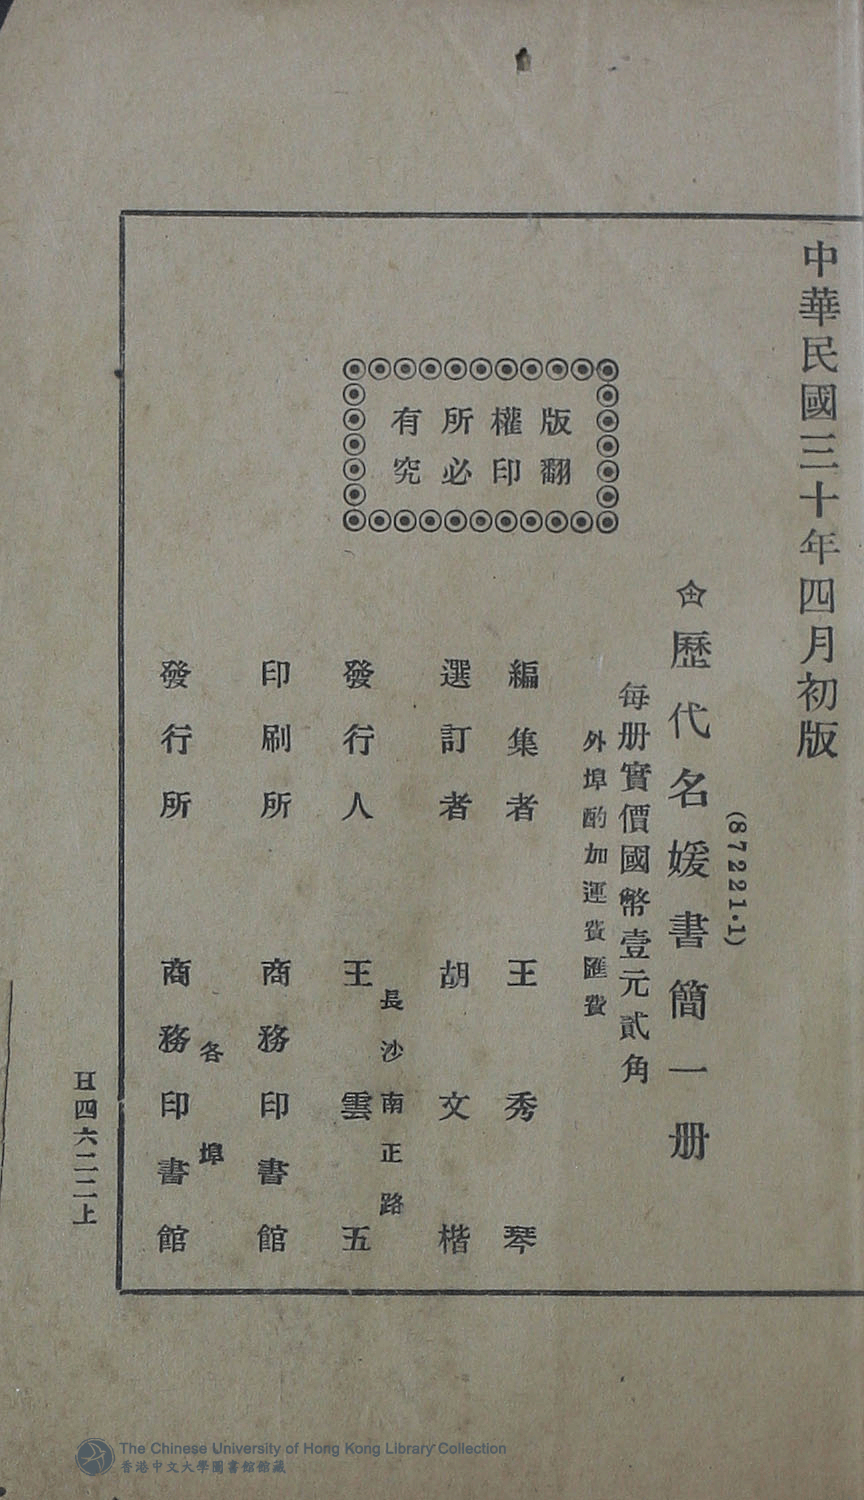 中華民國三十年四月初版
(87221·1)
歷代名媛書簡一册
每册實價國幣壹元貳角
外埠酌加運費匯費
版權所有
翻印必究
編集者 王秀琴
選訂者 胡文楷
長沙南正路
發行人 王雲五
印刷所 商務印書館
各埠
發行所 商務印書館
H四六二二上
The Chinese University of Hong Kong Library Collection
香港中文大學圖書館館藏